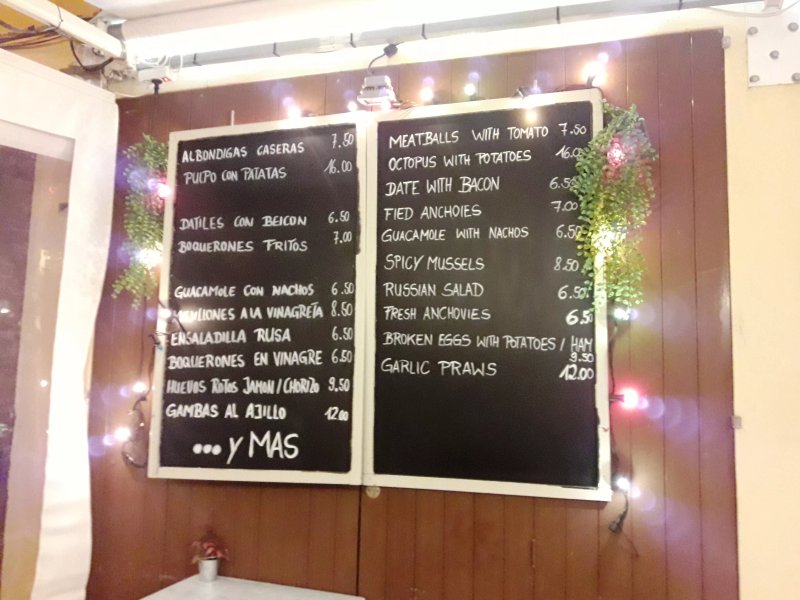 ALBONDIGAS CASERAS 7.50
PULPO CON PATATAS 16.00
DATILES CON BEICON 6.50
BOQUERONES FRITOS 7.00
GUACAMOLE CON NACHOS 6.50
A LA VINAGRETA 8.50
ENSALADILLA RUSA 6.50
BOQUERONES EN VINAGRE 6.50
HUEVOS ROTOS JAMON/CHORIZO 9.50
GAMBAS AL AJILLO 12.00
... Y MAS
MEATBALLS WITH TOMATO 7.50
OCTOPUS WITH POTATOES 16.00
DATE WITH BACON 6.50
FIED ANCHOIES 7.00
GUACAMOLE WITH NACHOS 6.50
SPICY MUSSELS 8.50
RUSSIAN SALAD 6.50
FRESH ANCHOVIES 6.50
BROKEN EGGS WITH POTATOES / HAM
9.50
GARLIC PRAWS 12.00